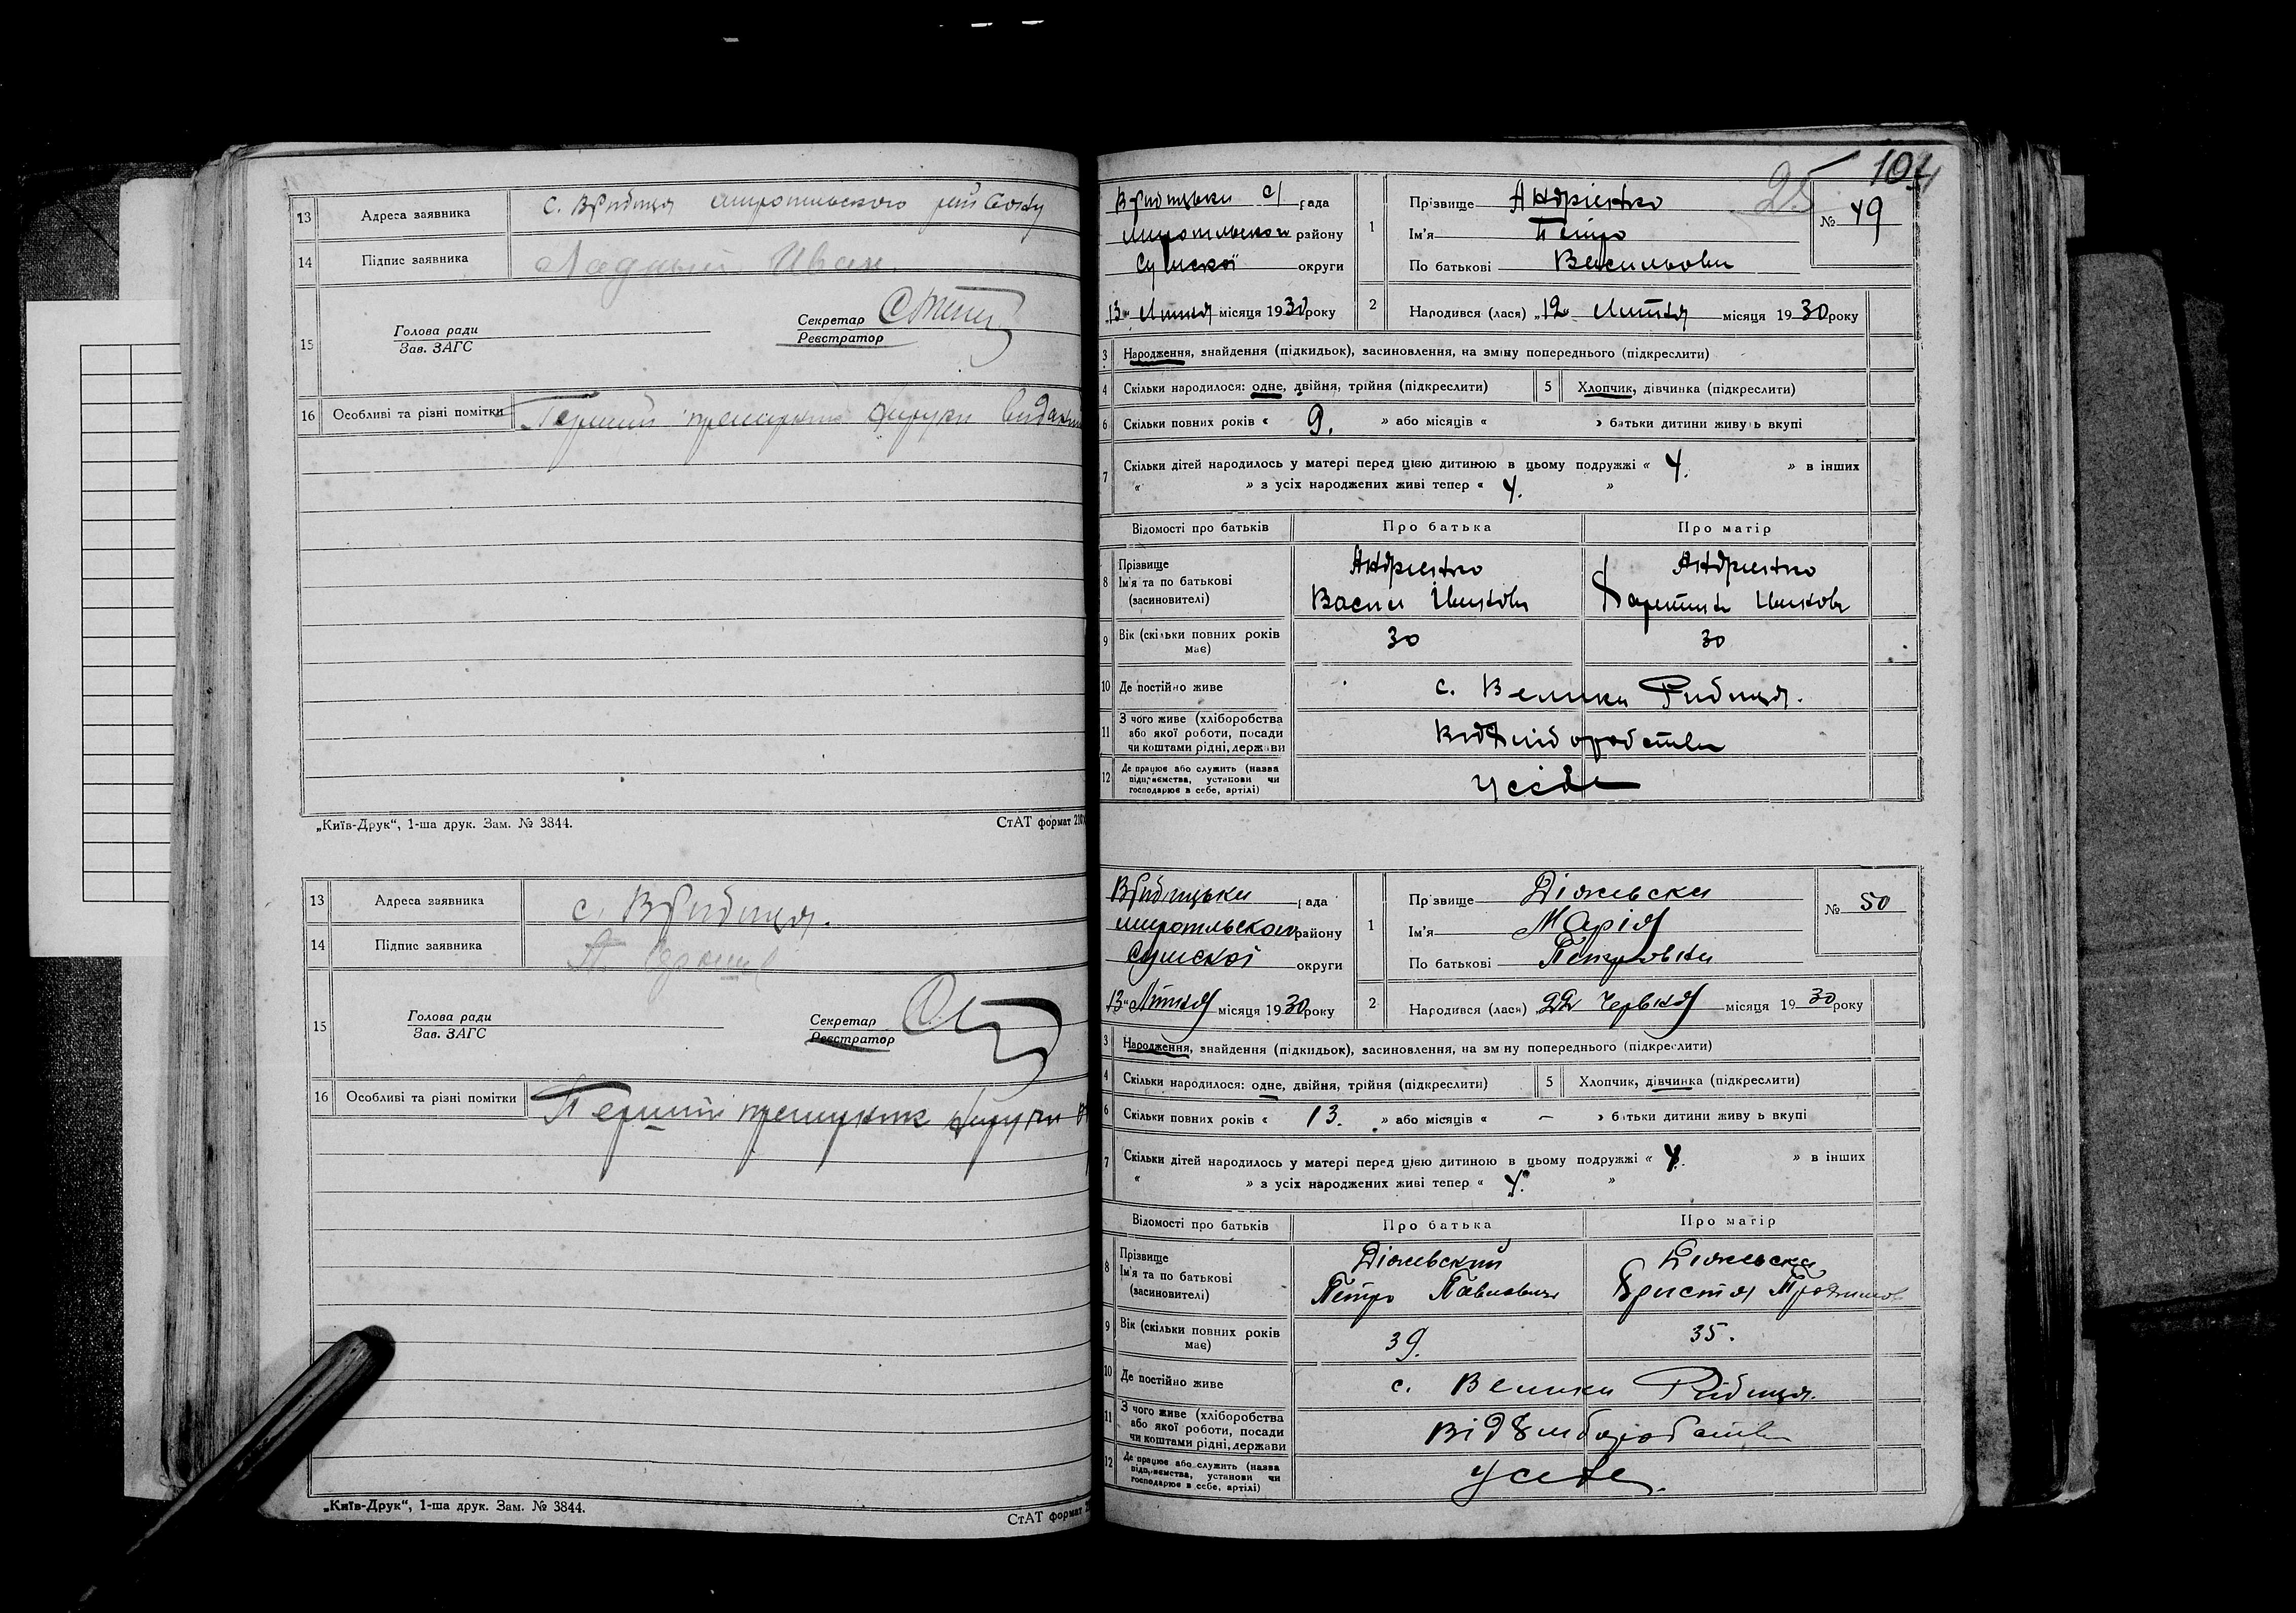 13 Адреса заявника с. ВРибиця миропільского району
14 Підпис заявника Иван
15 Голова ради
Зав. ЗАГС
Секретар
Реєстратор
16 Особливі та різні помітки Перший примірник
„Київ-Друк“, 1-ша друк. Зам. № 3844.
СтАТ формат
13 Адреса заявника с. ВРибиця.
14 Підпис заявника
15 Голова ради
Зав. ЗАГС
Секретар
Реєстратор
16 Особливі та різні помітки Перший примірник
„Київ-Друк“, 1-ша друк. Зам. № 3844.
СтАТ формат
25 104
ВРибицька с/ рада
району
Сумскої округи
„13“ Липня місяця 1930 року
1 Прізвище Андрієнко
Ім'я Петро
По батькові Васильови
№ 49
2 Народився (лася) „12“ Липня місяця 1930 року
3 Народження, знайдення (підкидьок), засиновлення, на зміну попереднього (підкреслити)
4 Скільки народилося: одне, двійня, трійня (підкреслити)
5 Хлопчик, дівчинка (підкреслити)
6 Скільки повних років « 9. » або місяців « » батьки дитини живуть вкупі
7 Скільки дітей народилось у матері перед цією дитиною в цьому подружжі « 4. » в інших
« » з усіх народжених живі тепер « 4. »
Відомості про батьків
Про батька
Про матір
8 Прізвище
Ім'я та по батькові
(засиновителі)
Андриенко
Андриенко
9 Вік (скільки повних років має)
30
30
10 Де постійно живе с. Велика Рибиця.
11 З чого живе (хліборобства
або якої роботи, посади
чи коштами рідні, держави
Від хліборобства
12 Де працює або служить (назва
підприємства, установи чи
господарює в себе, артілі)
у себе
ВРибицька рада
миропільского району
Сумскої округи
„13“ Липня місяця 1930 року
1 Прізвище Діжевська
Ім'я Марія
По батькові Петровна
№ 50
2 Народився (лася) „22“ Червня місяця 1930 року
3 Народження, знайдення (підкидьок), засиновлення, на зміну попереднього (підкреслити)
4 Скільки народилося: одне, двійня, трійня (підкреслити)
5 Хлопчик, дівчинка (підкреслити)
6 Скільки повних років « 13. » або місяців « – » батьки дитини живуть вкупі
7 Скільки дітей народилось у матері перед цією дитиною в цьому подружжі « 4. » в інших
« » з усіх народжених живі тепер « 4. »
Відомості про батьків
Про батька
Про матір
8 Прізвище
Ім'я та по батькові
(засиновителі)
Діжевский
Петро Павлович
Діжевська
9 Вік (скільки повних років має)
39.
35.
10 Де постійно живе с. Велика Рибиця.
11 З чого живе (хліборобства
або якої роботи, посади
чи коштами рідні, держави
Від хліборобства
12 Де працює або служить (назва
підприємства, установи чи
господарює в себе, артілі)
у себе